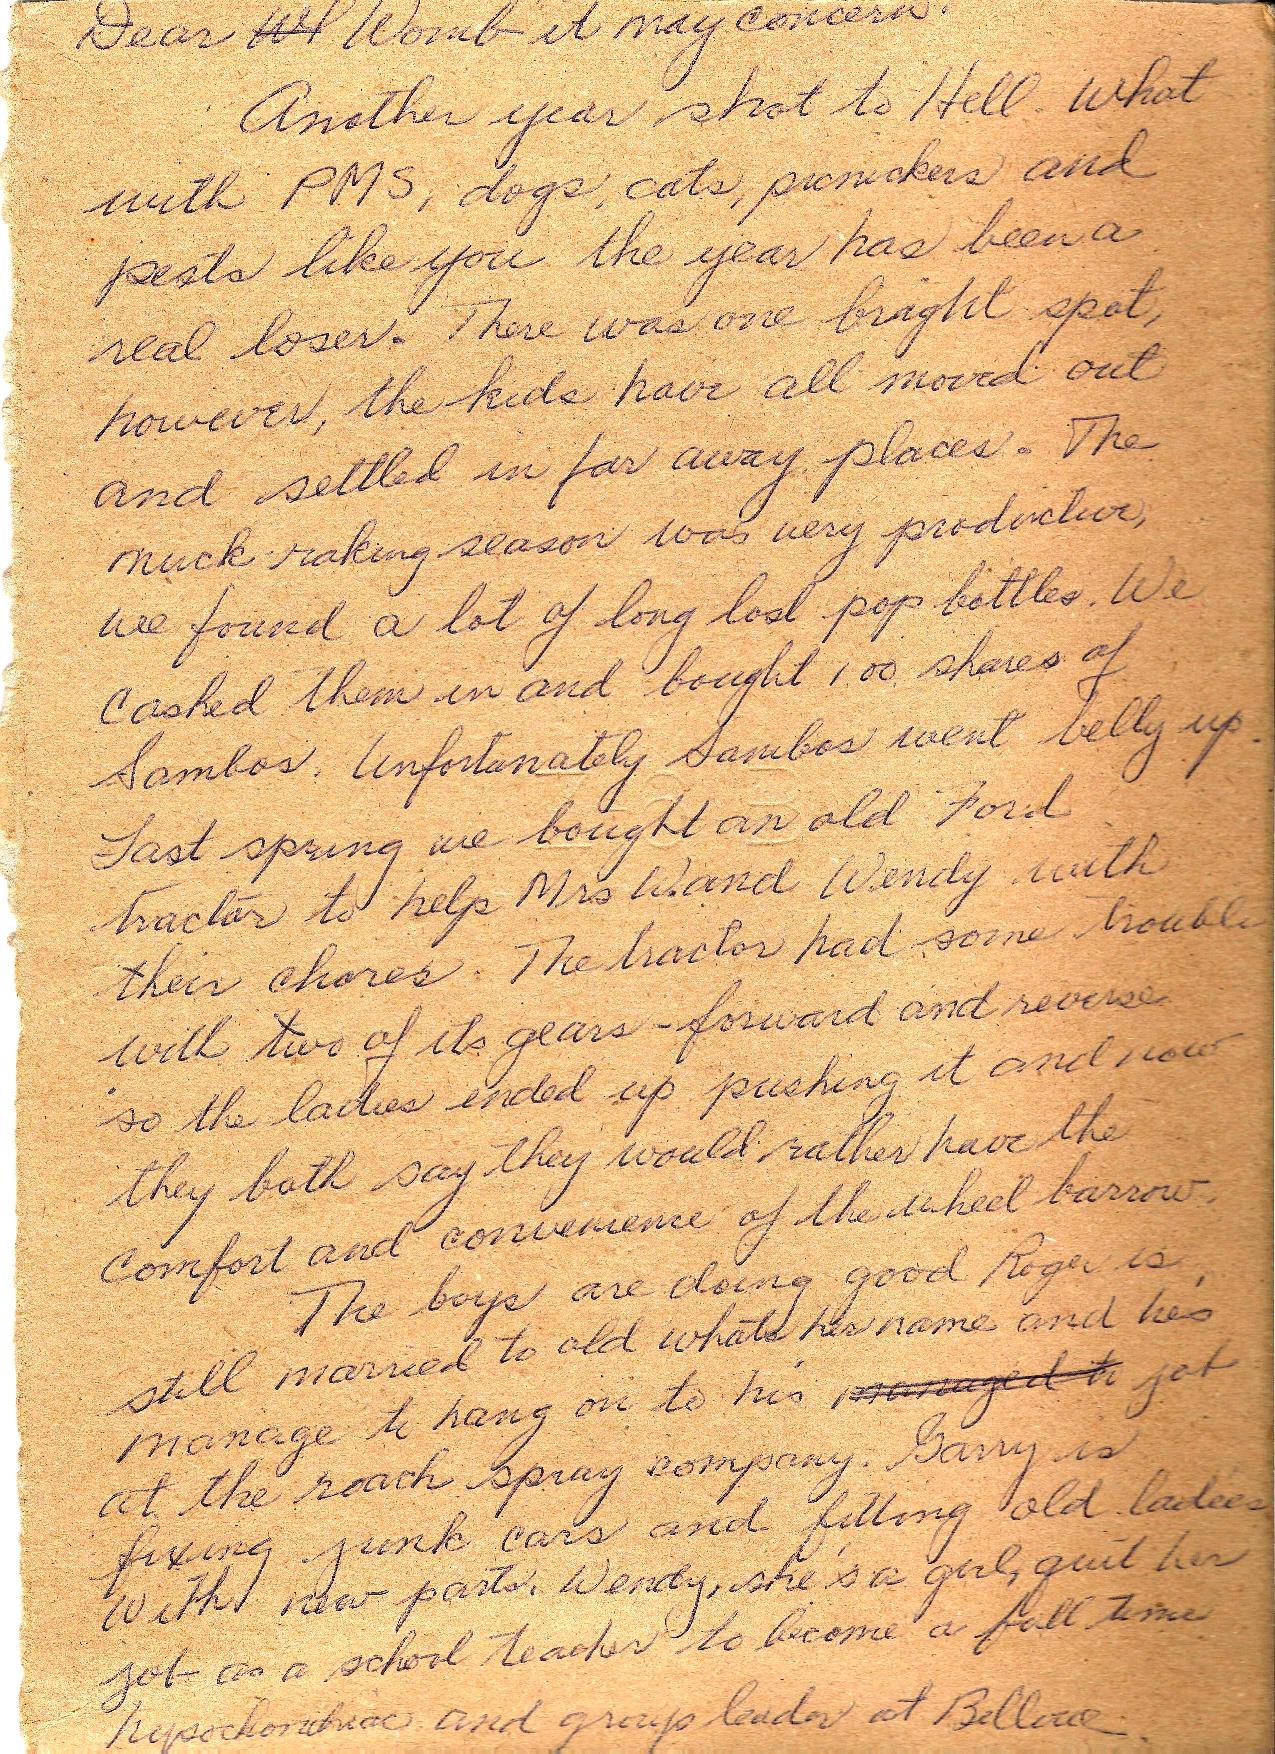 Dear Wh Womb it may concern:
Another year shot to Hell. What
with PMS, dogs, cats, picnickers and
pests like you the year has been a
real loser. There was one bright spot,
however, the kids have all moved out
and settled in far away places. The
muck raking season was very productive,
we found a lot of long lost pop bottles. We
cashed them in and bought 100 shares of
Sambos. Unfortunately Sambos went belly up.
Last spring we bought an old Ford
tractor to help Mrs W. and Wendy with
their chores. The tractor had some trouble
with two of its gears - forward and reverse
so the ladies ended up pushing it and now
they both say they would rather have the
comfort and convenience of the wheel barrow.
The boys are doing good Roger is
still married to old whats her name and has
manage to hang on to his managed to job
at the roach spray company. Garry is
fixing junk cars and fitting old ladies
with new parts. Wendy, she's a girl, quit her
job as a school teacher to become a full time
hypochondriac and group leader at Bellvue